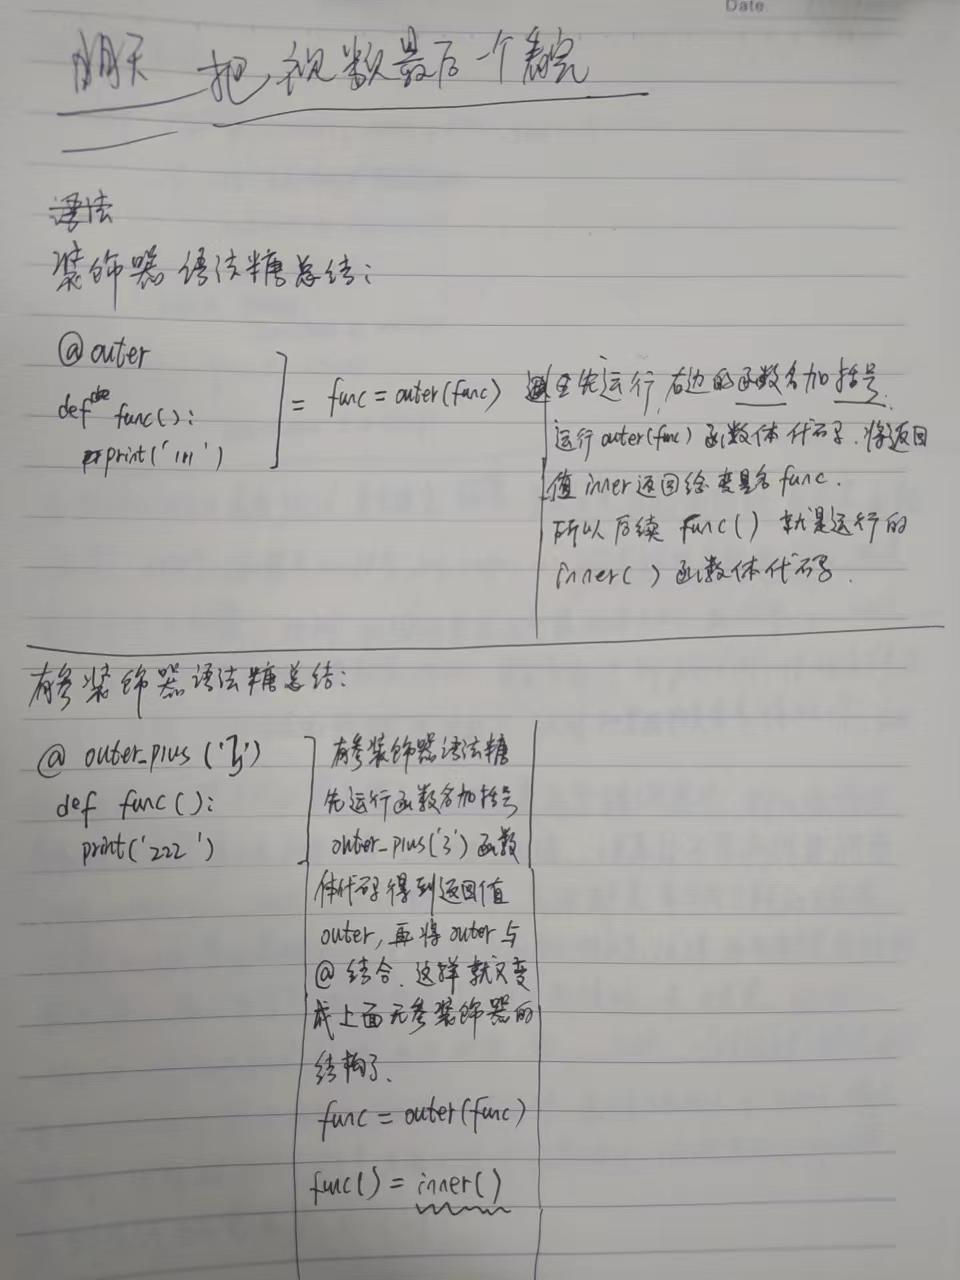 Date
明天 把 视 数最后一个表完
语法
装饰器语法糖总结:
@outer
def func():
print('111')
= func = outer(func)
先运行右边的函数名加括号.
运行outer(func)函数体代码.将返回
值inner返回给变量名func.
所以后续 func() 就是运行的
inner()函数体代码.
有参装饰器语法糖总结:
@ outer_plus ('3')
def func():
print('222')
有参装饰器语法糖
先运行函数名加括号
outer_plus('3')函数
体代码得到返回值
outer,再将outer与
@结合.这样就又变
成上面无参装饰器的
结构了.
func = outer(func)
func() = inner()